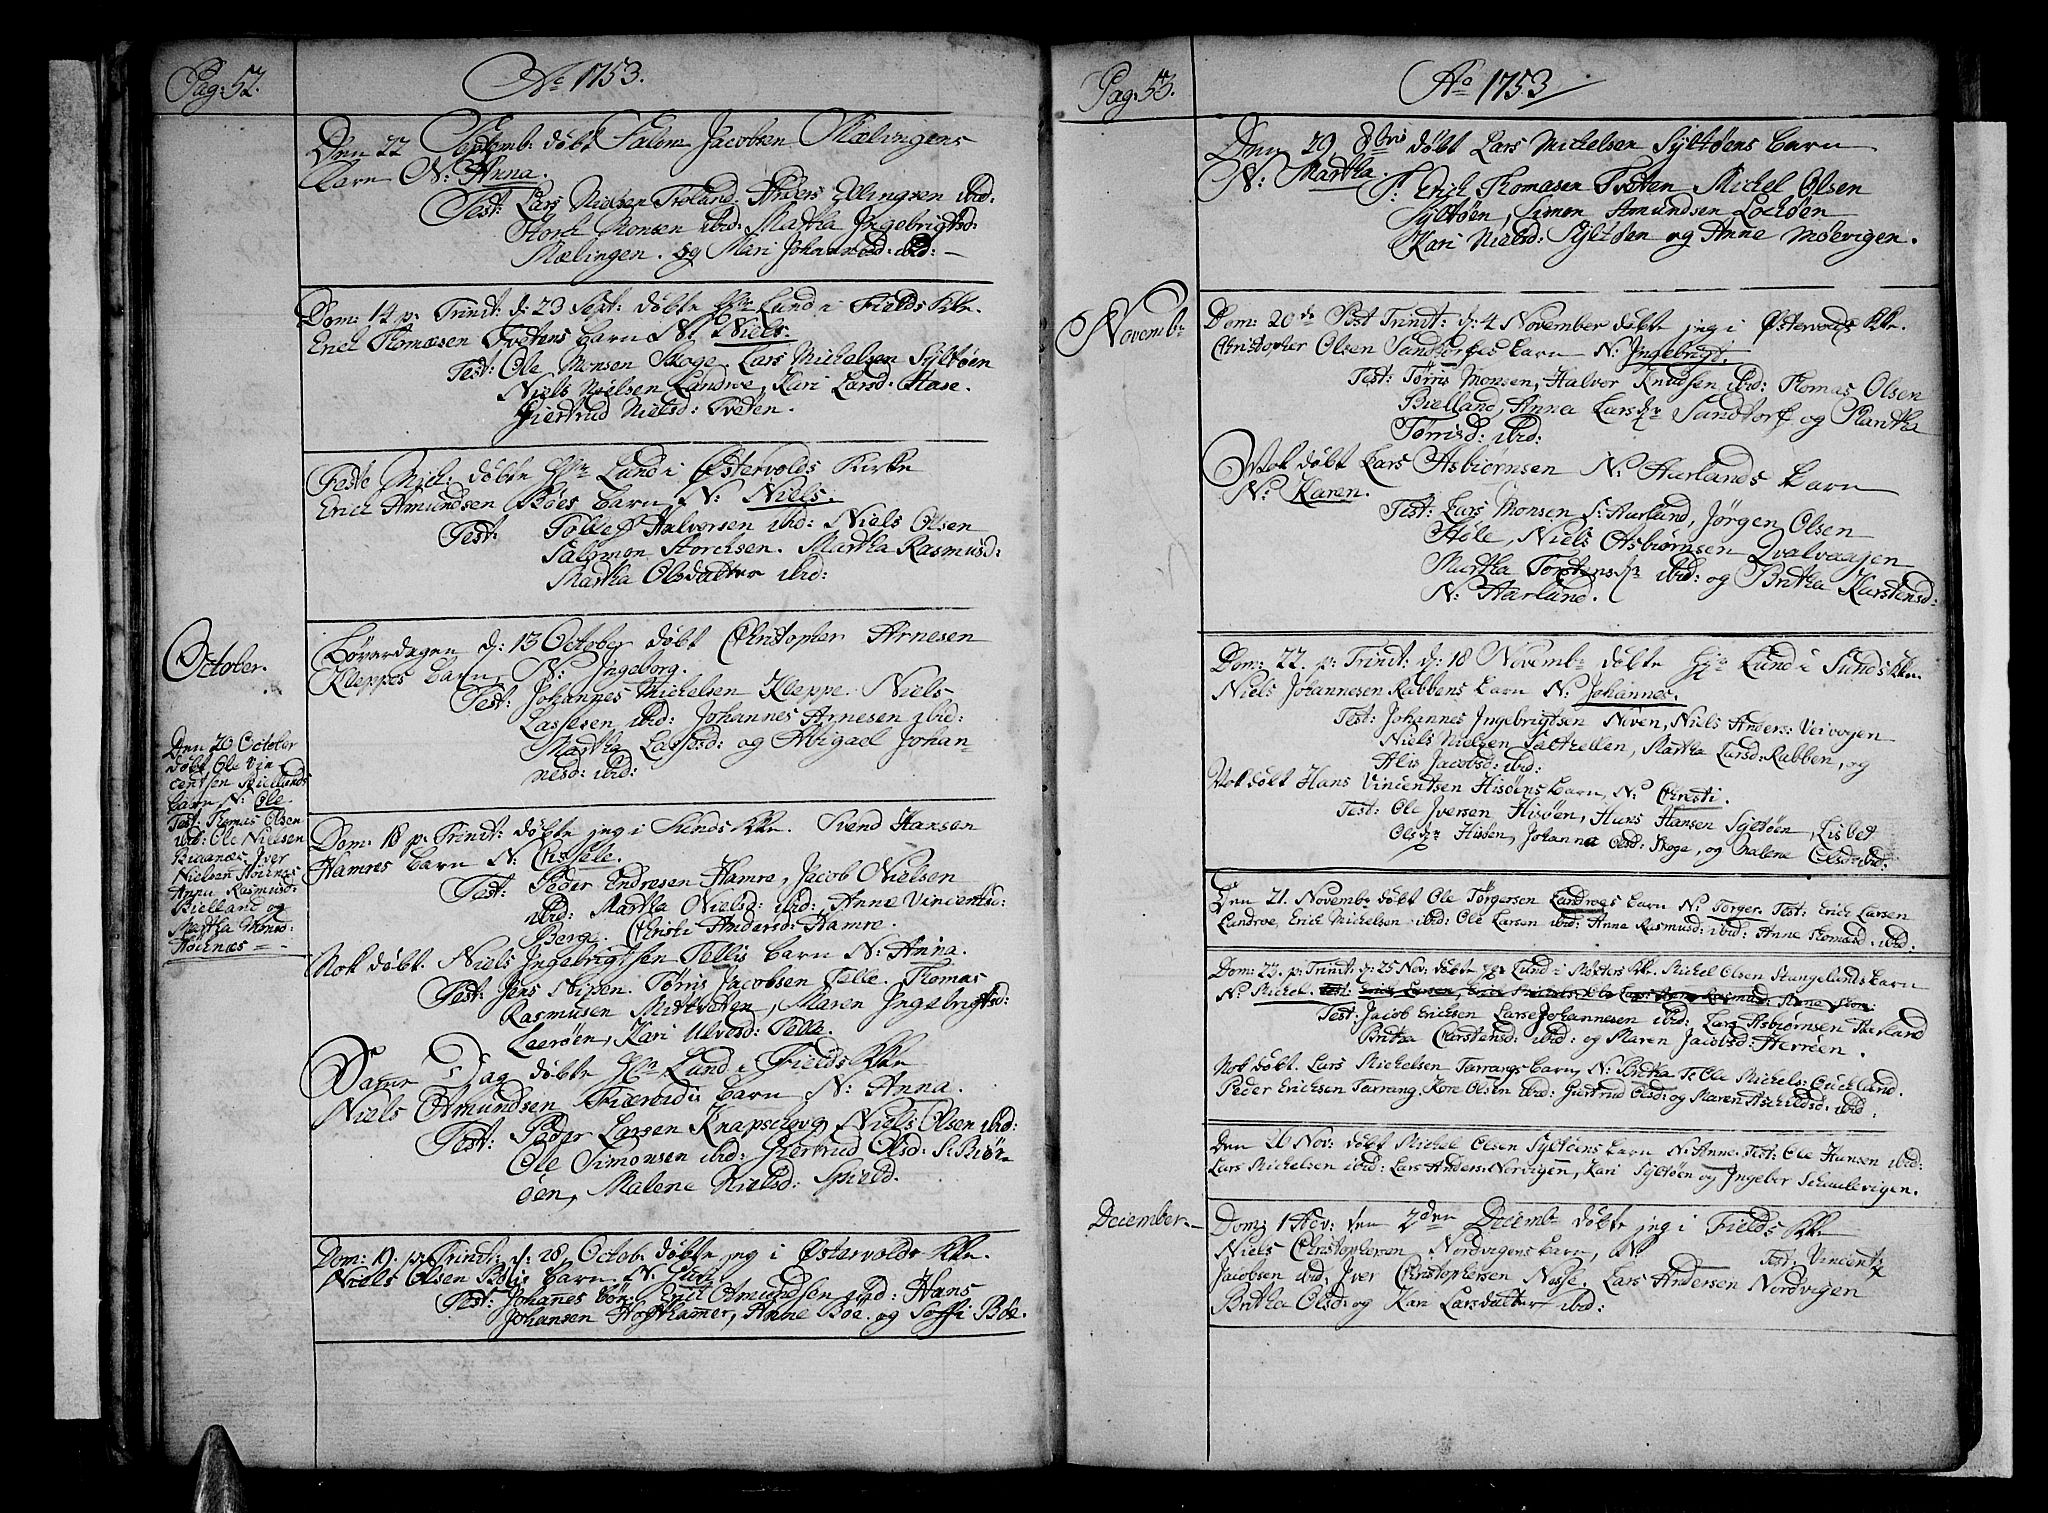 Pag: 52.
Ao 1753.
Den 22 Septemb: døbt Salom Jacobsen Mælingens
barn N: Anna.
Test: Lars Nielsen Troland. Anders Ellingsen ibid:
Storch Monsen ibid: Martha Ingebrigtsd:
Mælingen. og Mari Johannesd: ibid:
Dom: 14 p. Trinit: d: 23 Sept: døbte Hr Lund i Fields Kke.
Erich Thomæsen Tvetens barn N: Niels.
Test: Ole Monsen Skoge. Lars Michelsen Syltøen
Niels Nielsen Landroe, Kari Larsd: Hase.
Giertrud Nielsd: Tveten.
Festo Mich: døbte Hr Lund i Østervolds Kirke
Erich Amundsen Bøes barn N: Niels.
Test: Tollef Halversen ibid: Niels Olsen
Salomon Storchsen. Martha Rasmusd:
Martha Olsdatter ibid:
October.
Løverdagen d: 13 October døbt Christopher Arnesen
Kleppes barn N: Ingeborg.
Test: Johannes Michelsen Kleppe. Niels
Lassesen ibid: Johannes Arnesen ibid:
Martha Lassesd: og Abigael Johan-
nesd: ibid:
Den 20 October
døbt Ole Vin-
centsen Biellands
barn N: Ole.
Test: Thomas Olsen
ibid: Ole Nilesen
Iver
Nielsen Høienes
Anna Rasmusd:
Bielland og
Martha Monsd:
Høienæs
Dom: 18 p. Trinit: døbte jeg i Sunds Kke. Svend Hansen
Hamres barn N: Cissele.
Test: Peder Endresen Hamre, Jacob Nielsen
ibid: Martha Nielsd: ibid: Anne Vincentsd:
Berge. Christi Andersd: Hamre.
Nok døbt. Niels Ingebrigtsen Tellis barn N: Anna.
Test: Jens Stipen. Tørris Jacobsen Telle. Thomas
Rasmusen Mittveten, Maren Ingebrigtsd:
Leerøen, Kari Ulvesd: Telle.
Samme Dag døbte Hr Lund i Fields Kke
Niels Amundsen Fierebidis barn N: Anna.
Test: Peder Larsen Knapschog, Niels Olsen ibid:
Ole Simonsen ibid: Giertrud Olsd: S: Biør-
øen, Malene Nielsd: Spield.
Dom: 19. p. Trinit: d: 28 Octob: døbte jeg i Østervolds Kke.
Niels Olsen Bøis barn N:
Test: Johannes Bøe. Erich Amundsen ibid: Hans
Johansen Hophamer, Anne Bøe. og Soffi Bøe.
Pag: 53.
Ao 1753
Den 29 8bris døbt Lars Michelsen Syltøens barn
N: Martha.
T: Erich Thomasen Tveten Michel Olsen
Syltøen, Simon Amundsen Lochøen
Kari Nielsd: Syltøen og Anne Møevigen.
Novemb:
Dom: 20de Post Trinit: d: 4 November døbte jeg i Østervolds Kke.
Christopher Olsen Sandtorfes barn N: Ingebrigt.
Test: Tørris Monsen, Halvor Knudsen ibid: Thomas Olsen
Bielland, Anna Larsdr Sandtorf og Martha
Tørrisd: ibid:
Nok døbt Lars Asbiørnsen N: Aarlands barn
N: Karen.
Test: Lars Monsen S: Aarland, Jørgen Olsen
Støle, Niels Asbiørnsen Qvalvaagen
Martha Torstensdr ibid: og Britha Karstensd:
N: Aarland.
Dom: 22. p: Trinit: d: 18 Novemb: døbte Hr Lund i Sunds Kke.
Niels Johannesen Rabbens barn N: Johannes.
Test: Johannes Ingebrigtsen Noven, Niels Anders: Veivogen
Niels Nielsen Sæthellen, Martha Larsd: Rabben, og
Alis Jacobsd: ibid:
Nok døbt Hans Vincentsen Hisøens barn, N: Christi.
Test: Ole Iversen Hisøen, Hans Hansen Syltøen, Lisbet
Olsdr Hisøen, Johanna Olsd: Skoge, og Malene Olsd: ibid:
Den 21. Novembr døbt Ole Tørgersen Landroes barn N: Torger. Test: Erich Larsen
Landroe, Erich Michelsen ibid: Ole Larsen ibid: Anna Rasmusd: ibid: Anne Thomasd: ibid:
Dom: 23. p: Trinit: d: 25 Nov: døbte Hr Lund i Møcters Kke. Michel Olsen Stangelands barn
N: Michel. Test: Erich Larsen, Erich Michels: Ole Lars: Anna Rasmusd: Anne Thom:
Test: Jacob Erichsen Lars Johannesen ibid: Lars Asbiørnsen Aarland
Britha Carstensd: ibid: og Maren Jacobsd: Herrøen.
Nok døbt. Lars Michelsen Tarrangs barn, N: Britha T: Ole Michels: Euchland.
Peder Erichsen Tarrang. Kore Olsen ibid: Giertrud Olsd: og Maren Aschildsd: ibid:
Den 26 Nov: døbt Michel Olsen Syltøens barn N: Anne. Test: Ole Hansen ibid:
Lars Michelsen ibid: Lars Anders: Nordvigen, Kari Syltøen og Ingeber Schaalevigen.
December.
Dom: 1 Adv: den 2den Decemb: døbte jeg i Fields Kke
Niels Christophersen Nordvigens barn, N: Test: Vincentz
Jacobsen ibid: Iver Christophersen Nesse. Lars Andersen Nordvigen
Britha Olsd: og Kari Larsdatter ibid: